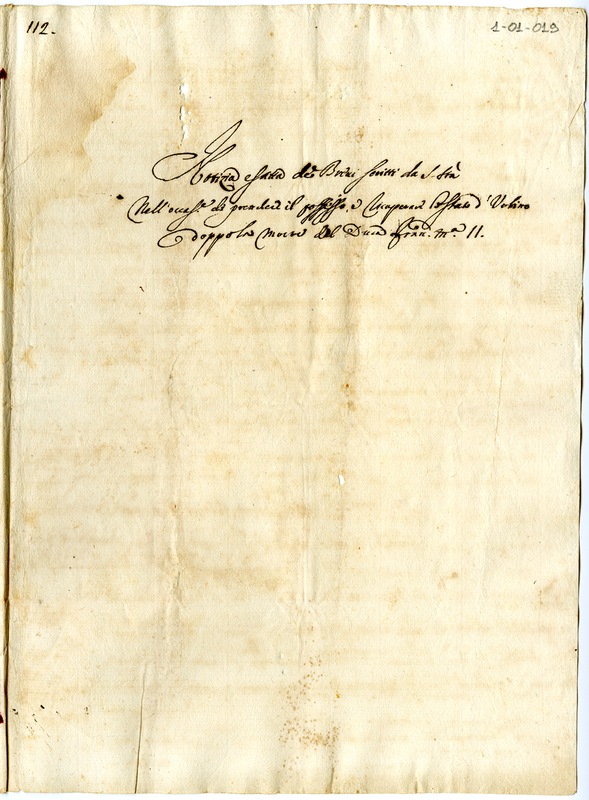 112.
1-01-019
Notizia esatta de Brevi scritti da S. Stà
Nell'occas.e di prendere il possesso, e lo Stato d'Urbino
doppo la morte del Duca Fran. M.a II.